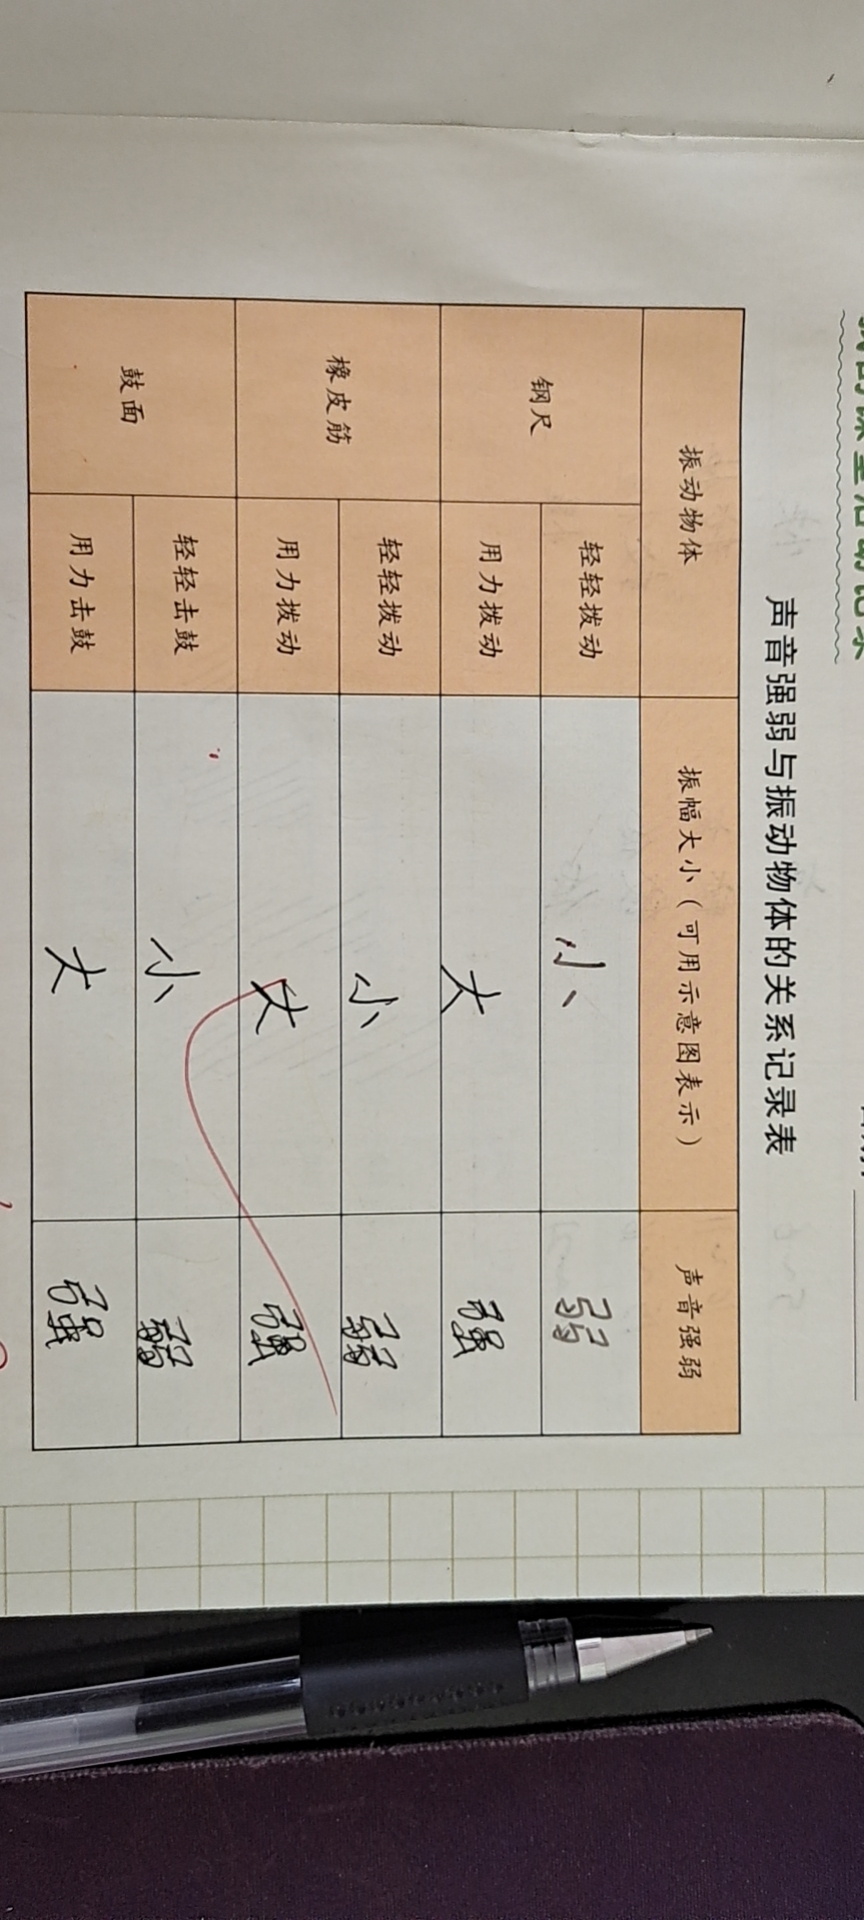 声音强弱与振动物体的关系记录表
振动物体 振幅大小（可用示意图表示） 声音强弱
钢尺 轻轻拨动 小 弱
用力拨动 大 强
橡皮筋 轻轻拨动 小 弱
用力拨动 大 强
鼓面 轻轻击鼓 小 弱
用力击鼓 大 强